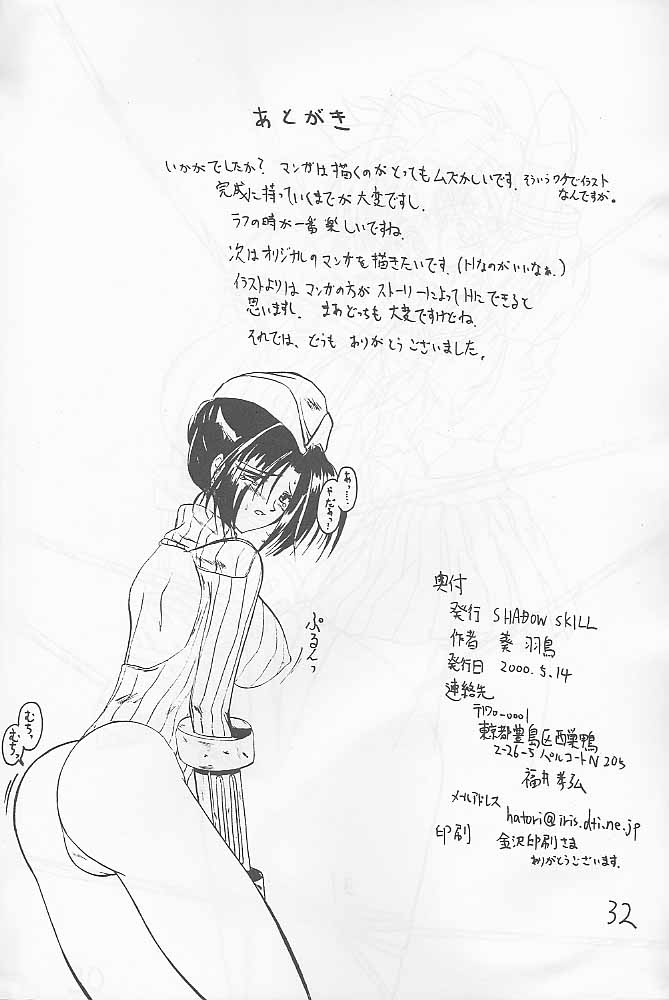 あとがき
いかがでしたか? マンガは描くのがとってもムズかしいです。そういうワケでイラスト
なんですが。
完成に持っていくまでが大変ですし.
ラフの時が一番楽しいですね.
次はオリジナルのマンガを描きたいです。(Hなのがいいなぁ.)
イラストよりはマンガの方がストーリーによってHにできると
思いますし. まあどっちも大変ですけどね.
それでは、どうもありがとうございました。
あっ……
やだぁっ!
ぷるんっ
むちっ
むちっ
奥付
発行 SHADOW SKILL
作者 葵 羽鳥
発行日 2000.5.14
連絡先
〒170-0001
東京都豊島区西巣鴨
2-26-5 パルコートN 205
福井孝弘
メールアドレス
hatori@iris.dti.ne.jp
印刷 金沢印刷さま
ありがとうございます.
32